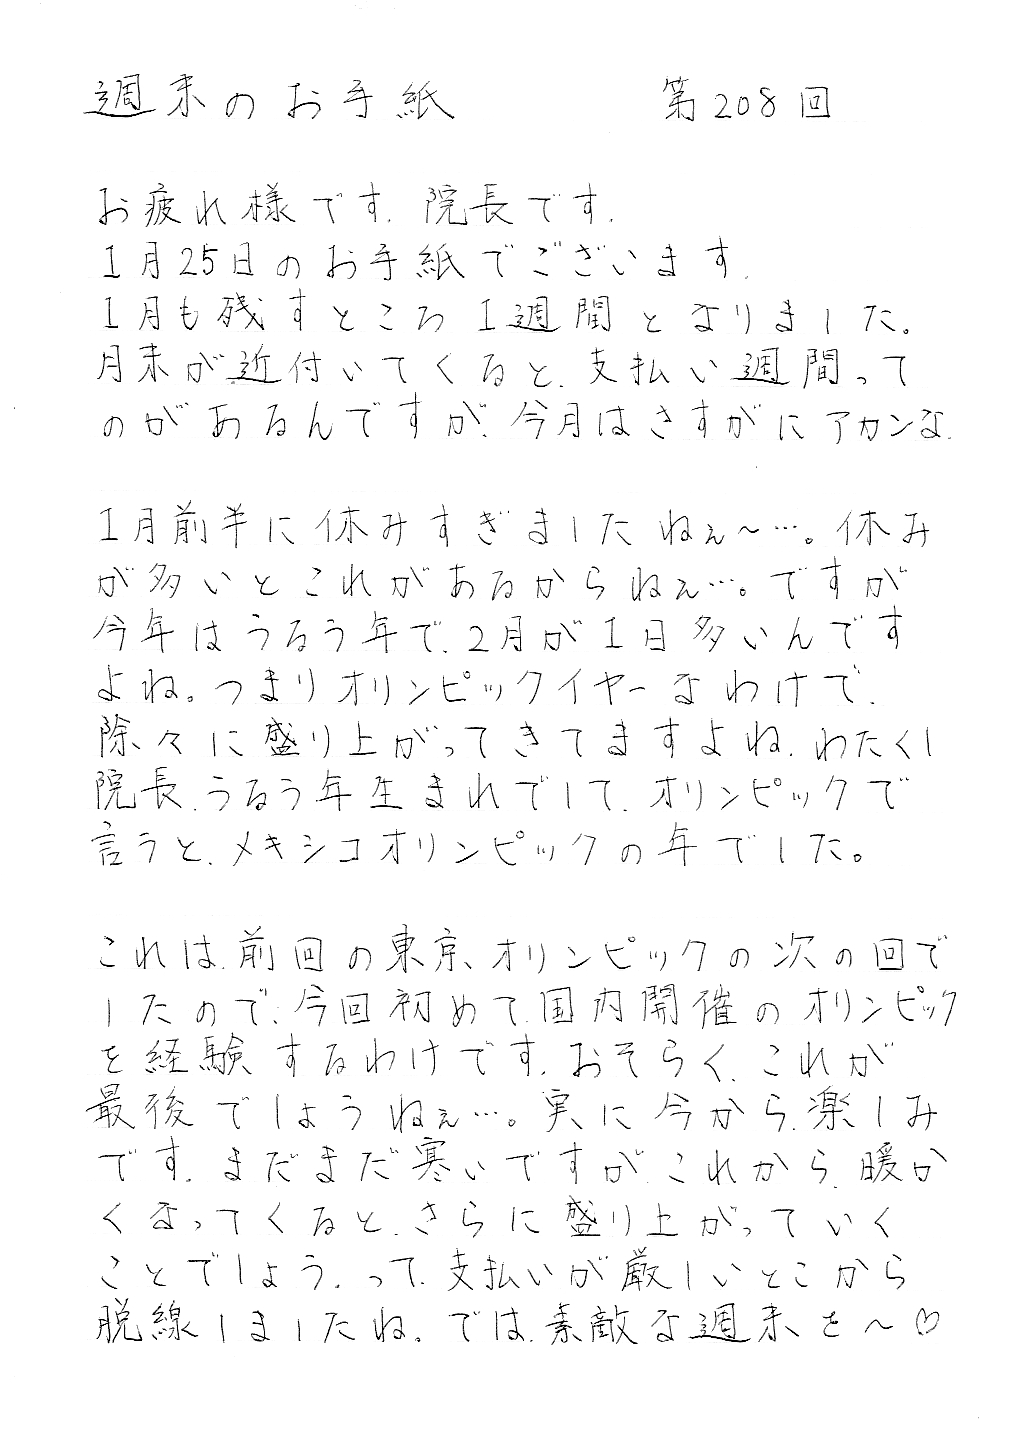 週末のお手紙 第208回
お疲れ様です、院長です、
1月25日のお手紙でございます、
1月も残すところ1週間となりました。
月末が近付いてくると、支払い週間って
のがあるんですが、今月はさすがにアカンな、
1月前半に休みすぎましたねぇ〜…。休み
が多いとこれがあるからねぇ…。ですが
今年はうるう年で、2月が1日多いんです
よね。つまりオリンピックイヤーなわけで、
除々に盛り上がってきてますよね、わたくし
院長、うるう年生まれでして、オリンピックで
言うと、メキシコオリンピックの年でした。
これは、前回の東京、オリンピックの次の回で
したので、今回初めて、国内開催のオリンピック
を経験するわけです、おそらく、これが
最後でしょうねぇ…。実に今から、楽しみ
です、まだまだ寒いですが、これから、暖か
くなってくると、さらに盛り上がっていく
ことでしょう、って、支払いが厳しいとこから
脱線しましたね、では、素敵な週末を〜♡